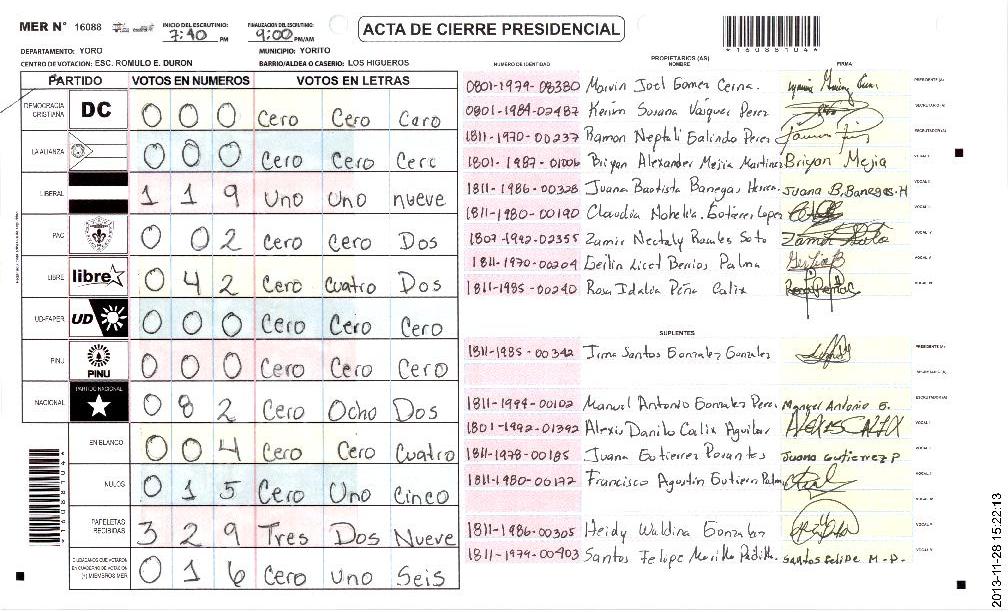 MER N° 16088 INICIO DEL ESCRUTINIO: 7:40 PM FINALIZACIÓN DEL ESCRUTINIO: 9:00 PM/AM ACTA DE CIERRE PRESIDENCIAL
*160881044*
DEPARTAMENTO: YORO MUNICIPIO: YORITO
CENTRO DE VOTACION: ESC. ROMULO E. DURON BARRIO/ALDEA O CASERIO: LOS HIGUEROS
PARTIDO VOTOS EN NUMEROS VOTOS EN LETRAS
DEMOCRACIA CRISTIANA DC 0 0 0 Cero Cero Cero
LA ALIANZA 0 0 0 Cero Cero Cero
LIBERAL 1 1 9 Uno Uno nueve
PAC 0 0 2 Cero Cero Dos
LIBRE libre 0 4 2 Cero Cuatro Dos
UD-FAPER UD 0 0 0 Cero Cero Cero
PINU PINU 0 0 0 Cero Cero Cero
NACIONAL PARTIDO NACIONAL 0 8 2 Cero Ocho Dos
EN BLANCO 0 0 4 Cero Cero Cuatro
NULOS 0 1 5 Cero Uno Cinco
PAPELETAS RECIBIDAS 3 2 9 Tres Dos Nueve
CIUDADANOS QUE VOTARON EN CUADERNO DE VOTACION (+) MIEMBROS MER 0 1 6 Cero Uno Seis
PROPIETARIOS (AS)
NUMERO DE IDENTIDAD NOMBRE FIRMA
0801-1979-08380 Marvin Joel Gomez Cerna. PRESIDENTE (A)
0801-1984-02487 Karim Susana Vasquez Perez SECRETARIO (A)
1811-1970-00237 Ramon Neptali Galindo Perez ESCRUTADOR (A)
1801-1987-01006 Briyan Alexander Mejia Martinez Briyan Mejia VOCAL I
1811-1986-00328 Juana Bautista Banegas Juana B. Banegas. H VOCAL II
1811-1980-00190 Claudia Gutierrez Lopez
1807-1992-02355 Zamir Nectaly Rosales Soto VOCAL IV
1811-1970-00204 Licet Berrios Palma
1811-1985-00240 Rosa Idalia Peña Calix
SUPLENTES
1811-1985-00342 Irma Santos Gonzalez Gonzales PRESIDENTE (A)
SECRETARIO (A)
1811-1994-00102 Manuel Antonio Gonzales Perez. Manuel Antonio G. ESCRUTADOR (A)
1801-1992-01392 Alexis Danilo Calix Aguilar ALEXIS CALIX VOCAL I
1811-1978-00185 Juana Gutierrez Juana Gutierrez P
1811-1980-00172 Francisco Agustin Gutierrez Palma
1811-1986-00305 Heidy Waldina Gonzales
1811-1979-00403 Santos Felipe Murillo Padilla. Santos Felipe M.P.
2013-11-28 15:22:13